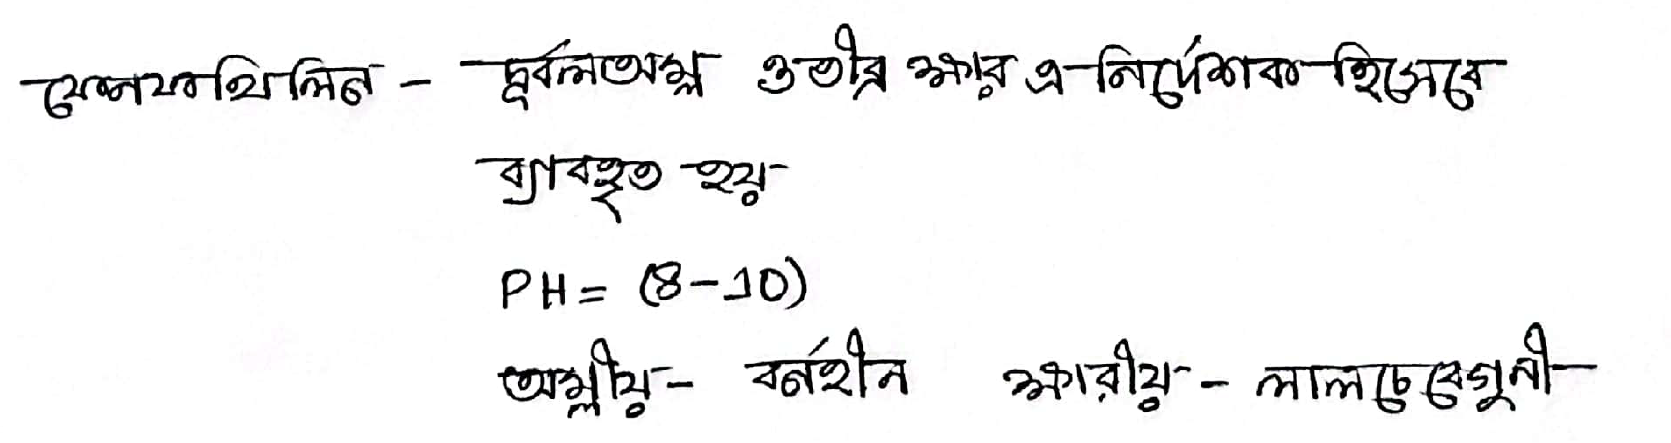 ফেনফথিলিন - দূর্বলঅম্ল ও তীব্র ক্ষার এ নির্দেশক হিসেবে
ব্যাবহৃত হয়
PH = (8-10)
অম্লীয় - বর্নহীন ক্ষারীয় - লালচে বেগুনী